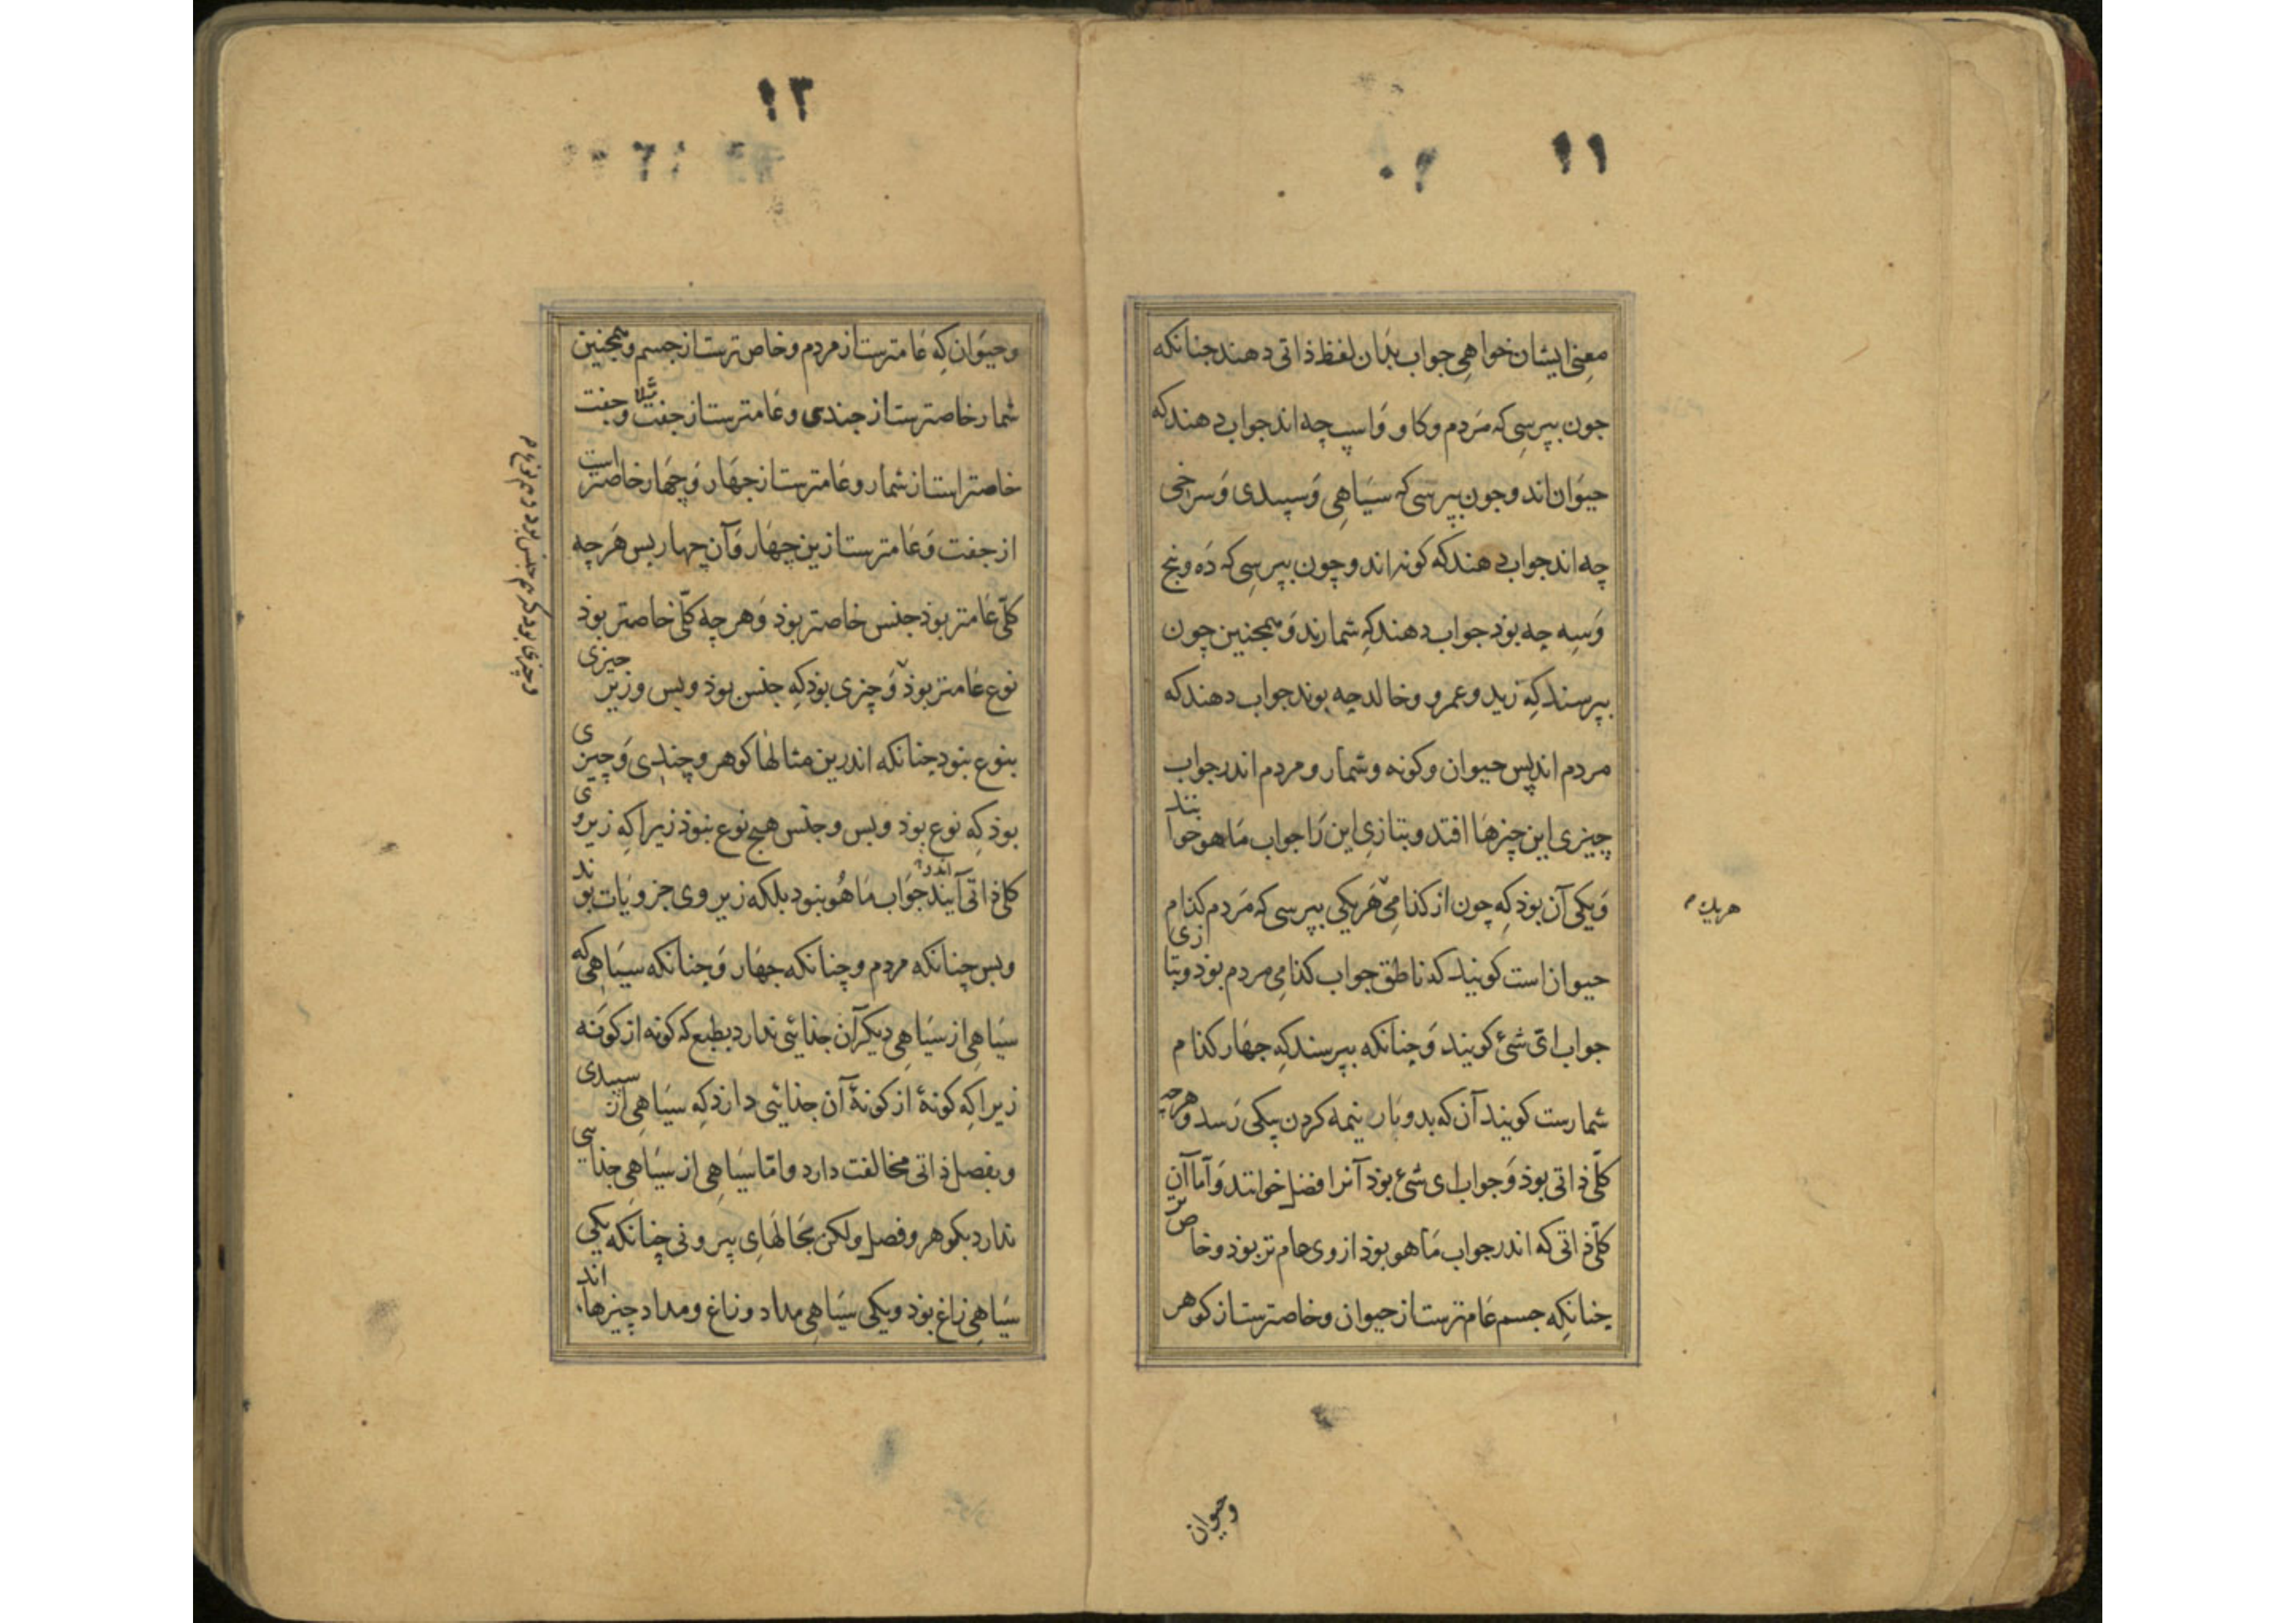 ۱۱
معنی ایشان خواهی جواب بذان لفظ ذاتی دهند جنانکه
جون بپرسی که مردم و کاو و اسپ چه اند جواب دهند که
حیوان اند و جون بپرسی که سیاهی و سپیدی و سرخی
چه اند جواب دهند که کونه اند و چون بپرسی که ده و پنج
و سه چه بوذ جواب دهند که شمارند و همجنین چون
بپرسند که زید و عمرو و خالد چه بوند جواب دهند که
مردم اند پس حیوان و کونه و شمار و مردم اندر جواب
چیزی این چیزها افتد و بتازی این را جواب ما هو خوانند
و یکی آن بوذ که چون از کذامی هر یکی بپرسی که مردم کذام
هر یک م
حیوان است کویند که ناطق جواب کذامی مردم بوذ و بتازی
جواب ای شئ کویند و چنانکه بپرسند که جهار کذام
شمارست کویند آن که بدو بار نیمه کردن بیکی رسد و هرچه
کلّی ذاتی بوذ و جواب ای شئ بوذ آنرا فصل خوانند و آما آن
کلّی ذاتی که اندر جواب ما هو بوذ از وی عام تر بوذ و خاص تر
چنانکه جسم عام ترست از حیوان و خاصترست از کوهر
وحیوان
۱۲
و حیوان که عامترست از مردم و خاص ترست از جسم و همجنین
شمار خاصترست از جندی و عامترست از جفت مثلا و جفت
خاصتر است از شمار و عامترست از جهار و چهار خاصتر است
از جفت و عامترست ازین چهار و آن چهار بس هر چه
کلّی عامتر بوذ جنس خاصتر بوذ و هر چه کلّی خاصتر بوذ
نوع عامتر بوذ و چیزی بوذ که جنس بوذ و بس و زیر چیزی
و چیزی بود که هم جنس بود و هم نوع م
بنوع بنود چنانکه اندرین مثالها کوهر و چندی و چیزی
بوذ که نوع بوذ و بس و جنس هیج نوع بنوذ زیرا که زیر وی
کلی ذاتی آیند اندر جواب ما هو بنود بلکه زیر وی جزویات بوند
و بس چنانکه مردم و چنانکه جهار و جنانکه سیاهی که
سیاهی از سیاهی دیکر آن جذایئی ندارد بطبع که کونه از کونه
زیرا که کونهٔ از کونهٔ آن جذائی دارذ که سیاهی از سپیدی
و بفصل ذاتی مخالفت دارد و امّا سیاهی از سیاهی جذایی
ندارد بکوهر و فصل ولکن بحالهای بیرونی چنانکه یکی
سیاهی زاغ بوذ و یکی سیاهی مداد و زاغ و مداد چیزها اند